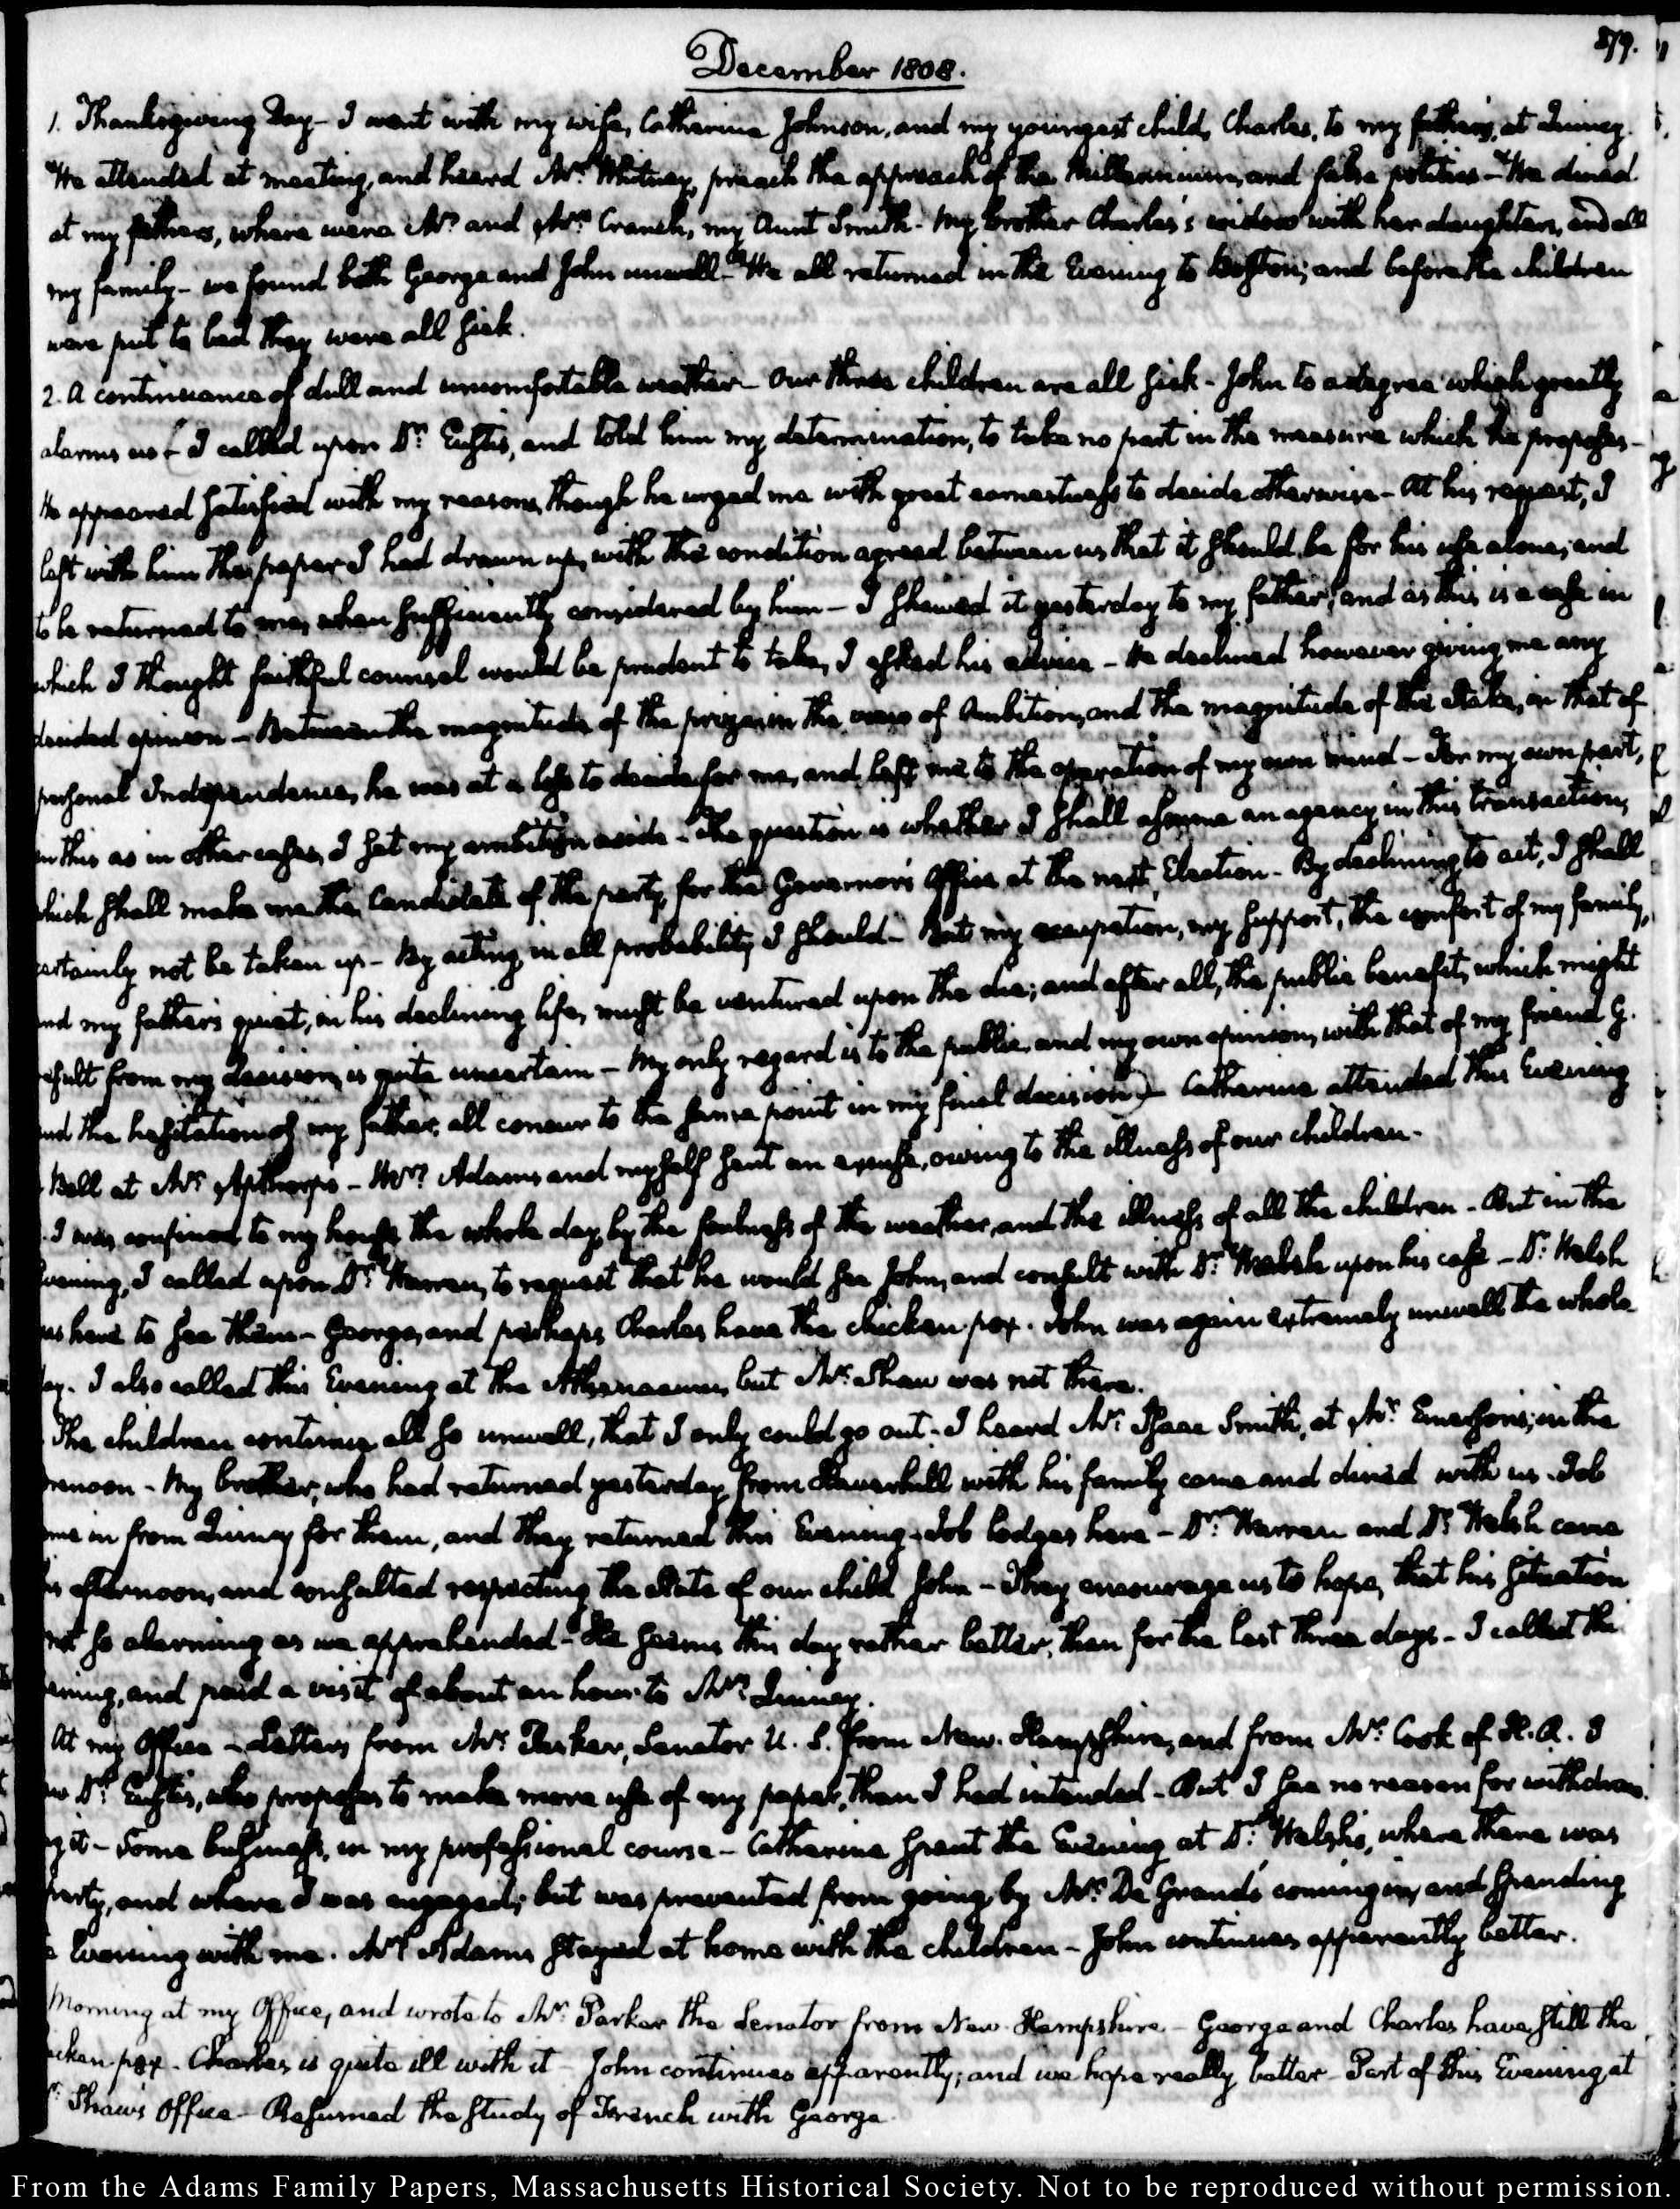 379.
December 1808.
1. Thanksgiving Day - I went with my wife, Catherine Johnson, and my youngest child, Charles, to my father's, at Quincy.
We attended at meeting, and heard Mr. Whitney, preach the approach of the Millennium, and false politics - We dined
at my father's, where were Mr. and Mrs. Cranch, my Aunt Smith. My brother Charles's widow with her daughters, and all
my family - we found both George and John unwell - We all returned in the Evening to Boston; and before the children
were put to bed they were all sick.
2. A continuance of dull and uncomfortable weather - Our three children are all sick - John to a degree which greatly
alarms us - (I called upon Dr. Eustis, and told him my determination, to take no part in the measure which he proposes -
He appeared satisfied with my reasons, though he urged me with great earnestness to decide otherwise - At his request, I
left with him the paper I had drawn up, with the condition agreed between us that it should be for his use alone; and
to be returned to me, when sufficiently considered by him - I shewed it yesterday to my father, and as this is a case in
which I thought faithful counsel would be prudent to take, I asked his advice - He declined however giving me any
decided opinion - Between the magnitude of the prize in the views of Ambition, and the magnitude of the Stake, in that of
personal Independence, he was at a loss to decide for me, and left me to the operation of my own mind - For my own part,
in this as in other cases, I set my ambition aside - The question is whether I shall assume an agency in this transaction,
which shall make me the Candidate of the party, for the Governor's Office, at the next Election - By declining to act, I shall
certainly not be taken up - By acting, in all probability I should - But my occupation, my support, the comfort of my family,
and my father's quiet, in his declining life, must be ventured upon the die; and after all, the public benefit, which might
result from my decision, is quite uncertain - My only regard is to the public, and my own opinion, with that of my friend G.
and the hesitation of my father, all concur to the same point in my final decision) - Catherine attended this Evening
Ball at Mr. Apthorp's - Mrs. Adams and myself sent an excuse, owing to the illness of our children.
I was confined to my house the whole day, by the foulness of the weather, and the illness of all the children - But in the
Evening, I called upon Dr. Warren, to request that he would see John, and consult with Dr. Welsh upon his case - Dr. Welsh
was here to see them - George, and perhaps Charles have the chicken pox. John was again extremely unwell the whole
day. I also called this Evening at the Athenaeum, but Mr. Shaw was not there.
The children continue all so unwell, that I only could go out. I heard Mr. Isaac Smith, at Mr. Emerson's; in the
forenoon - My brother, who had returned yesterday from Haverhill with his family came and dined with us. Job
came in from Quincy for them, and they returned this Evening. Job lodges here - Dr. Warren and Dr. Welsh came
this afternoon, and consulted respecting the State of our child John - They encourage us to hope, that his situation
not so alarming as we apprehended - He seems this day rather better, than for the last three days - I called this
evening, and paid a visit of about an hour to Mrs. Quincy.
At my Office - Letters from Mr. Parker, Senator U. S. from New-Hampshire, and from Mr. Cook of H. R. I
saw Dr. Eustis, who proposes to make more use of my paper, than I had intended - But I see no reason for withdraw-
ing it - Some business, in my professional course - Catherine spent the Evening at Dr. Welsh's, where there was
party, and where I was engaged; but was prevented from going by Mr. De Grand's coming in, and spending
the Evening with me. Mrs. Adams stayed at home with the children - John continues apparently better.
Morning at my Office, and wrote to Mr. Parker the Senator from New-Hampshire - George and Charles have still the
chicken-pox - Charles is quite ill with it - John continues apparently; and we hope really better - Part of this Evening at
Mr. Shaw's Office - Resumed the study of French with George.
From the Adams Family Papers, Massachusetts Historical Society. Not to be reproduced without permission.